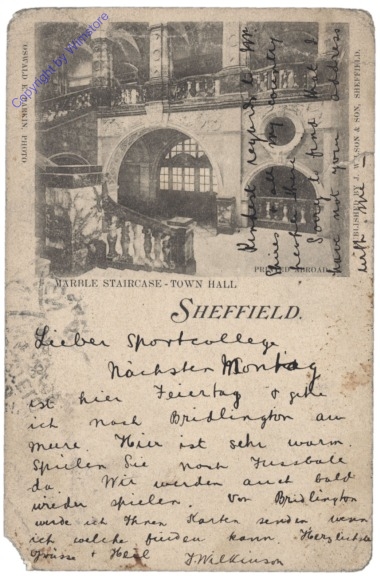 Copyright by Ansichtskartenstore
OSWALD K. LARKIN, PHOTO
PUBLISHED BY J. WILSON & SON, SHEFFIELD.
PRINTED ABROAD
MARBLE STAIRCASE - TOWN HALL
SHEFFIELD.
Kindest regards to Mr.
& all my country
there
Sorry to find that I
have not your address
with me —
Lieber Sportcollege
Nächsten Montag
ist hier Feiertag & gehe
ich nach Bridlington am
meere. Hier ist sehr warm.
Spielen Sie noch Fussbale
da. Wir werden auch bald
wieder spielen. Von Bridlington
werde ich Ihnen Karten senden wenn
ich welche finden kann. Herzlichste
Grüsse & Heil J Wilkinson